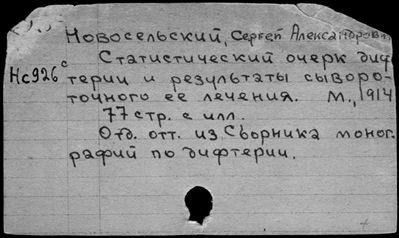 Новосельский, Сергей Александрович
Нс926 с
Статистический очерк диф
терии и результаты сыворо-
точного ее лечения. М., 1914
77 стр. с илл.
Отд. отт. из Сборника моног
рафий по дифтерии.